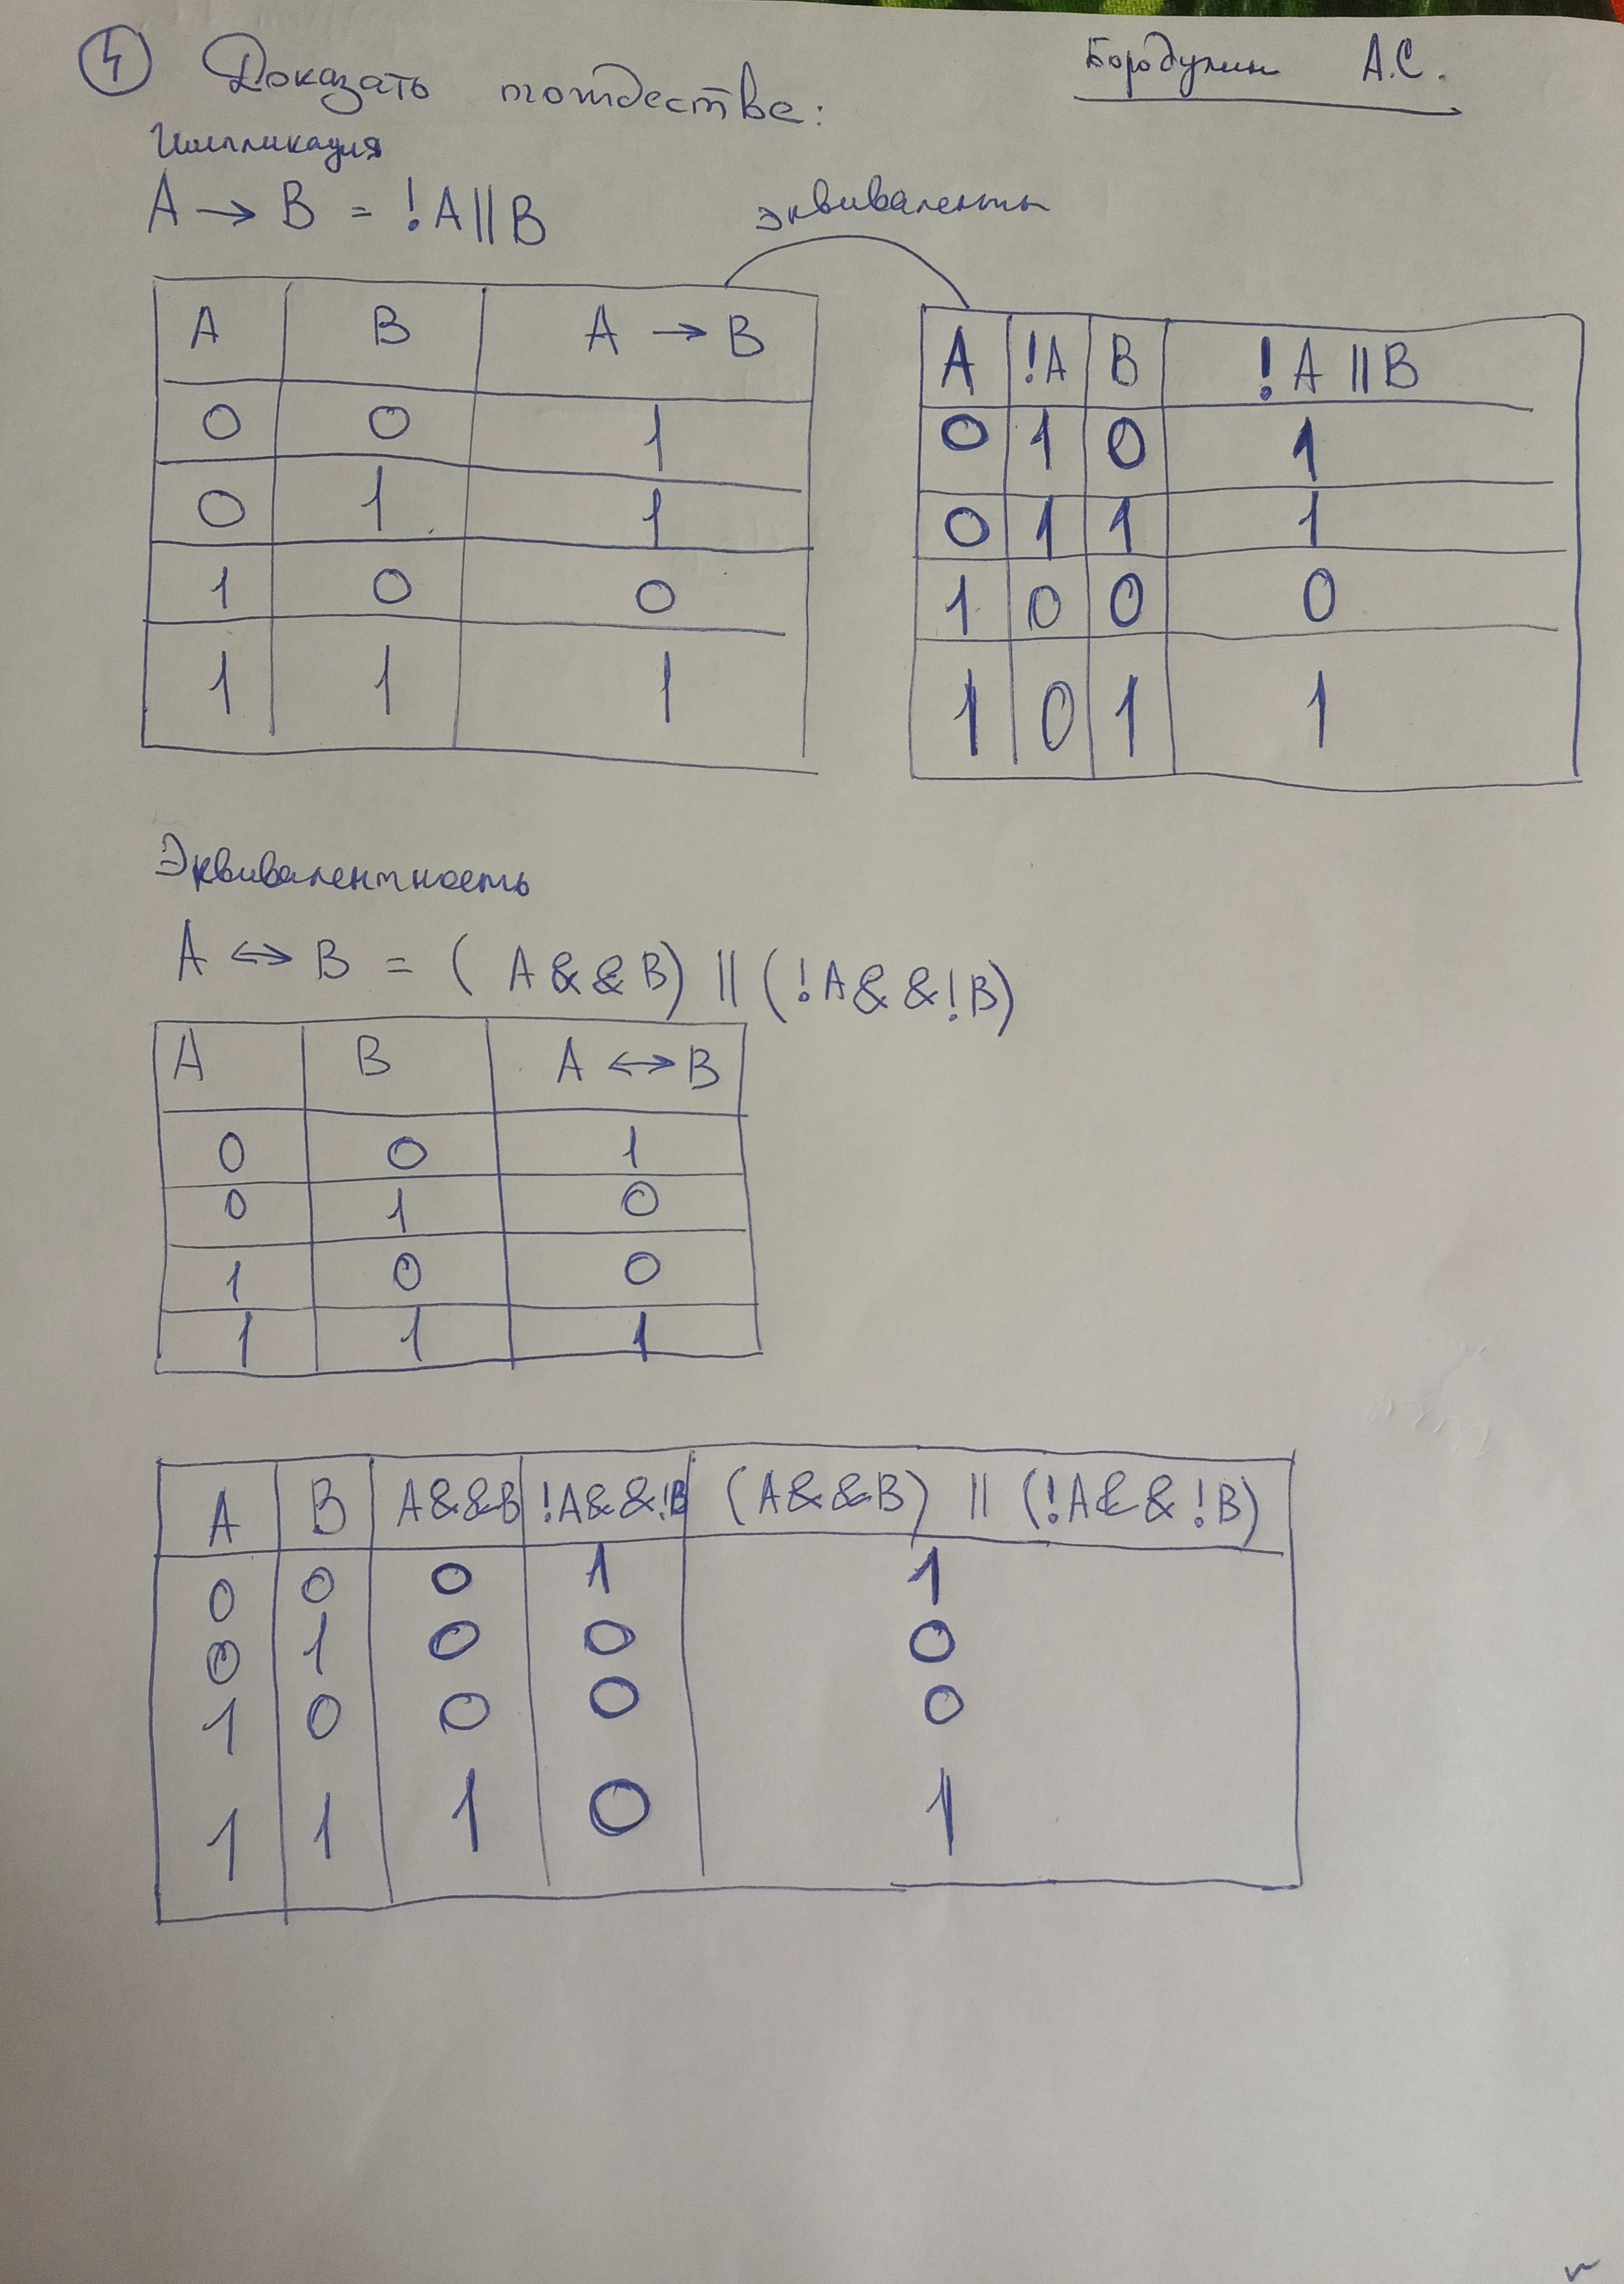 4 Доказать тождестве:
Бородулин А.С.
Импликация
A → B = !A||B
эквиваленты
A B A → B
0 0 1
0 1 1
1 0 0
1 1 1
A !A B !A || B
0 1 0 1
0 1 1 1
1 0 0 0
1 0 1 1
Эквивалентность
A ↔ B = (A&&B) || (!A&&!B)
A B A ↔ B
0 0 1
0 1 0
1 0 0
1 1 1
A B A&&B !A&&!B (A&&B) || (!A&&!B)
0 0 0 1 1
0 1 0 0 0
1 0 0 0 0
1 1 1 0 1